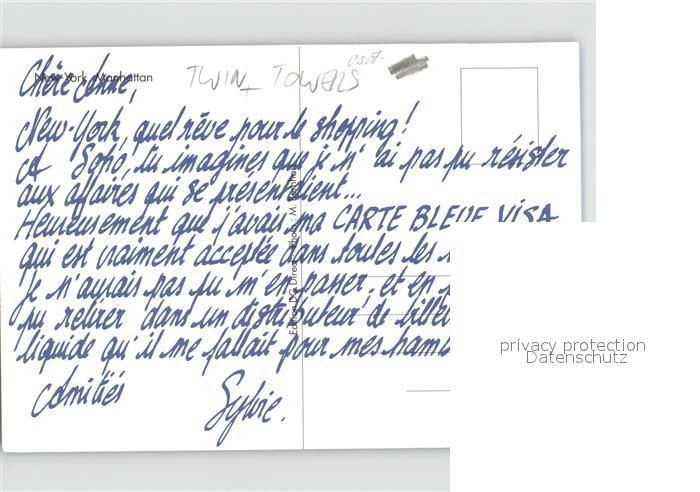 New-York, Manhattan
TWIN TOWERS
Chère Anne,
New-York, quel rêve pour le shopping!
A Soho, tu imagines que je n'ai pas pu résister
aux affaires qui se présentaient...
Heureusement que j'avais ma CARTE BLEUE VISA
qui est vraiment acceptée dans toutes les
je n'aurais pas pu m'en passer, et en
pu retirer dans un distributeur de
liquide qu'il me fallait pour mes
Amitiés
Sylvie.
privacy protection
Datenschutz